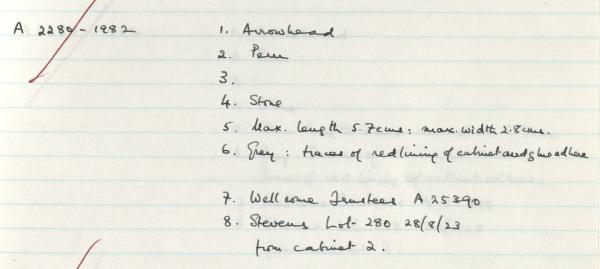 A 2280-1982 1. Arrowhead
2. Peru
3.
4. Stone
5. Max. length 5.7cms: max. width 2.8cms.
6. Grey: traces of red lining of cabinet and glue adhere
7. Wellcome Trustees A 25390
8. Stevens Lot 280 28/8/23
from cabinet 2.